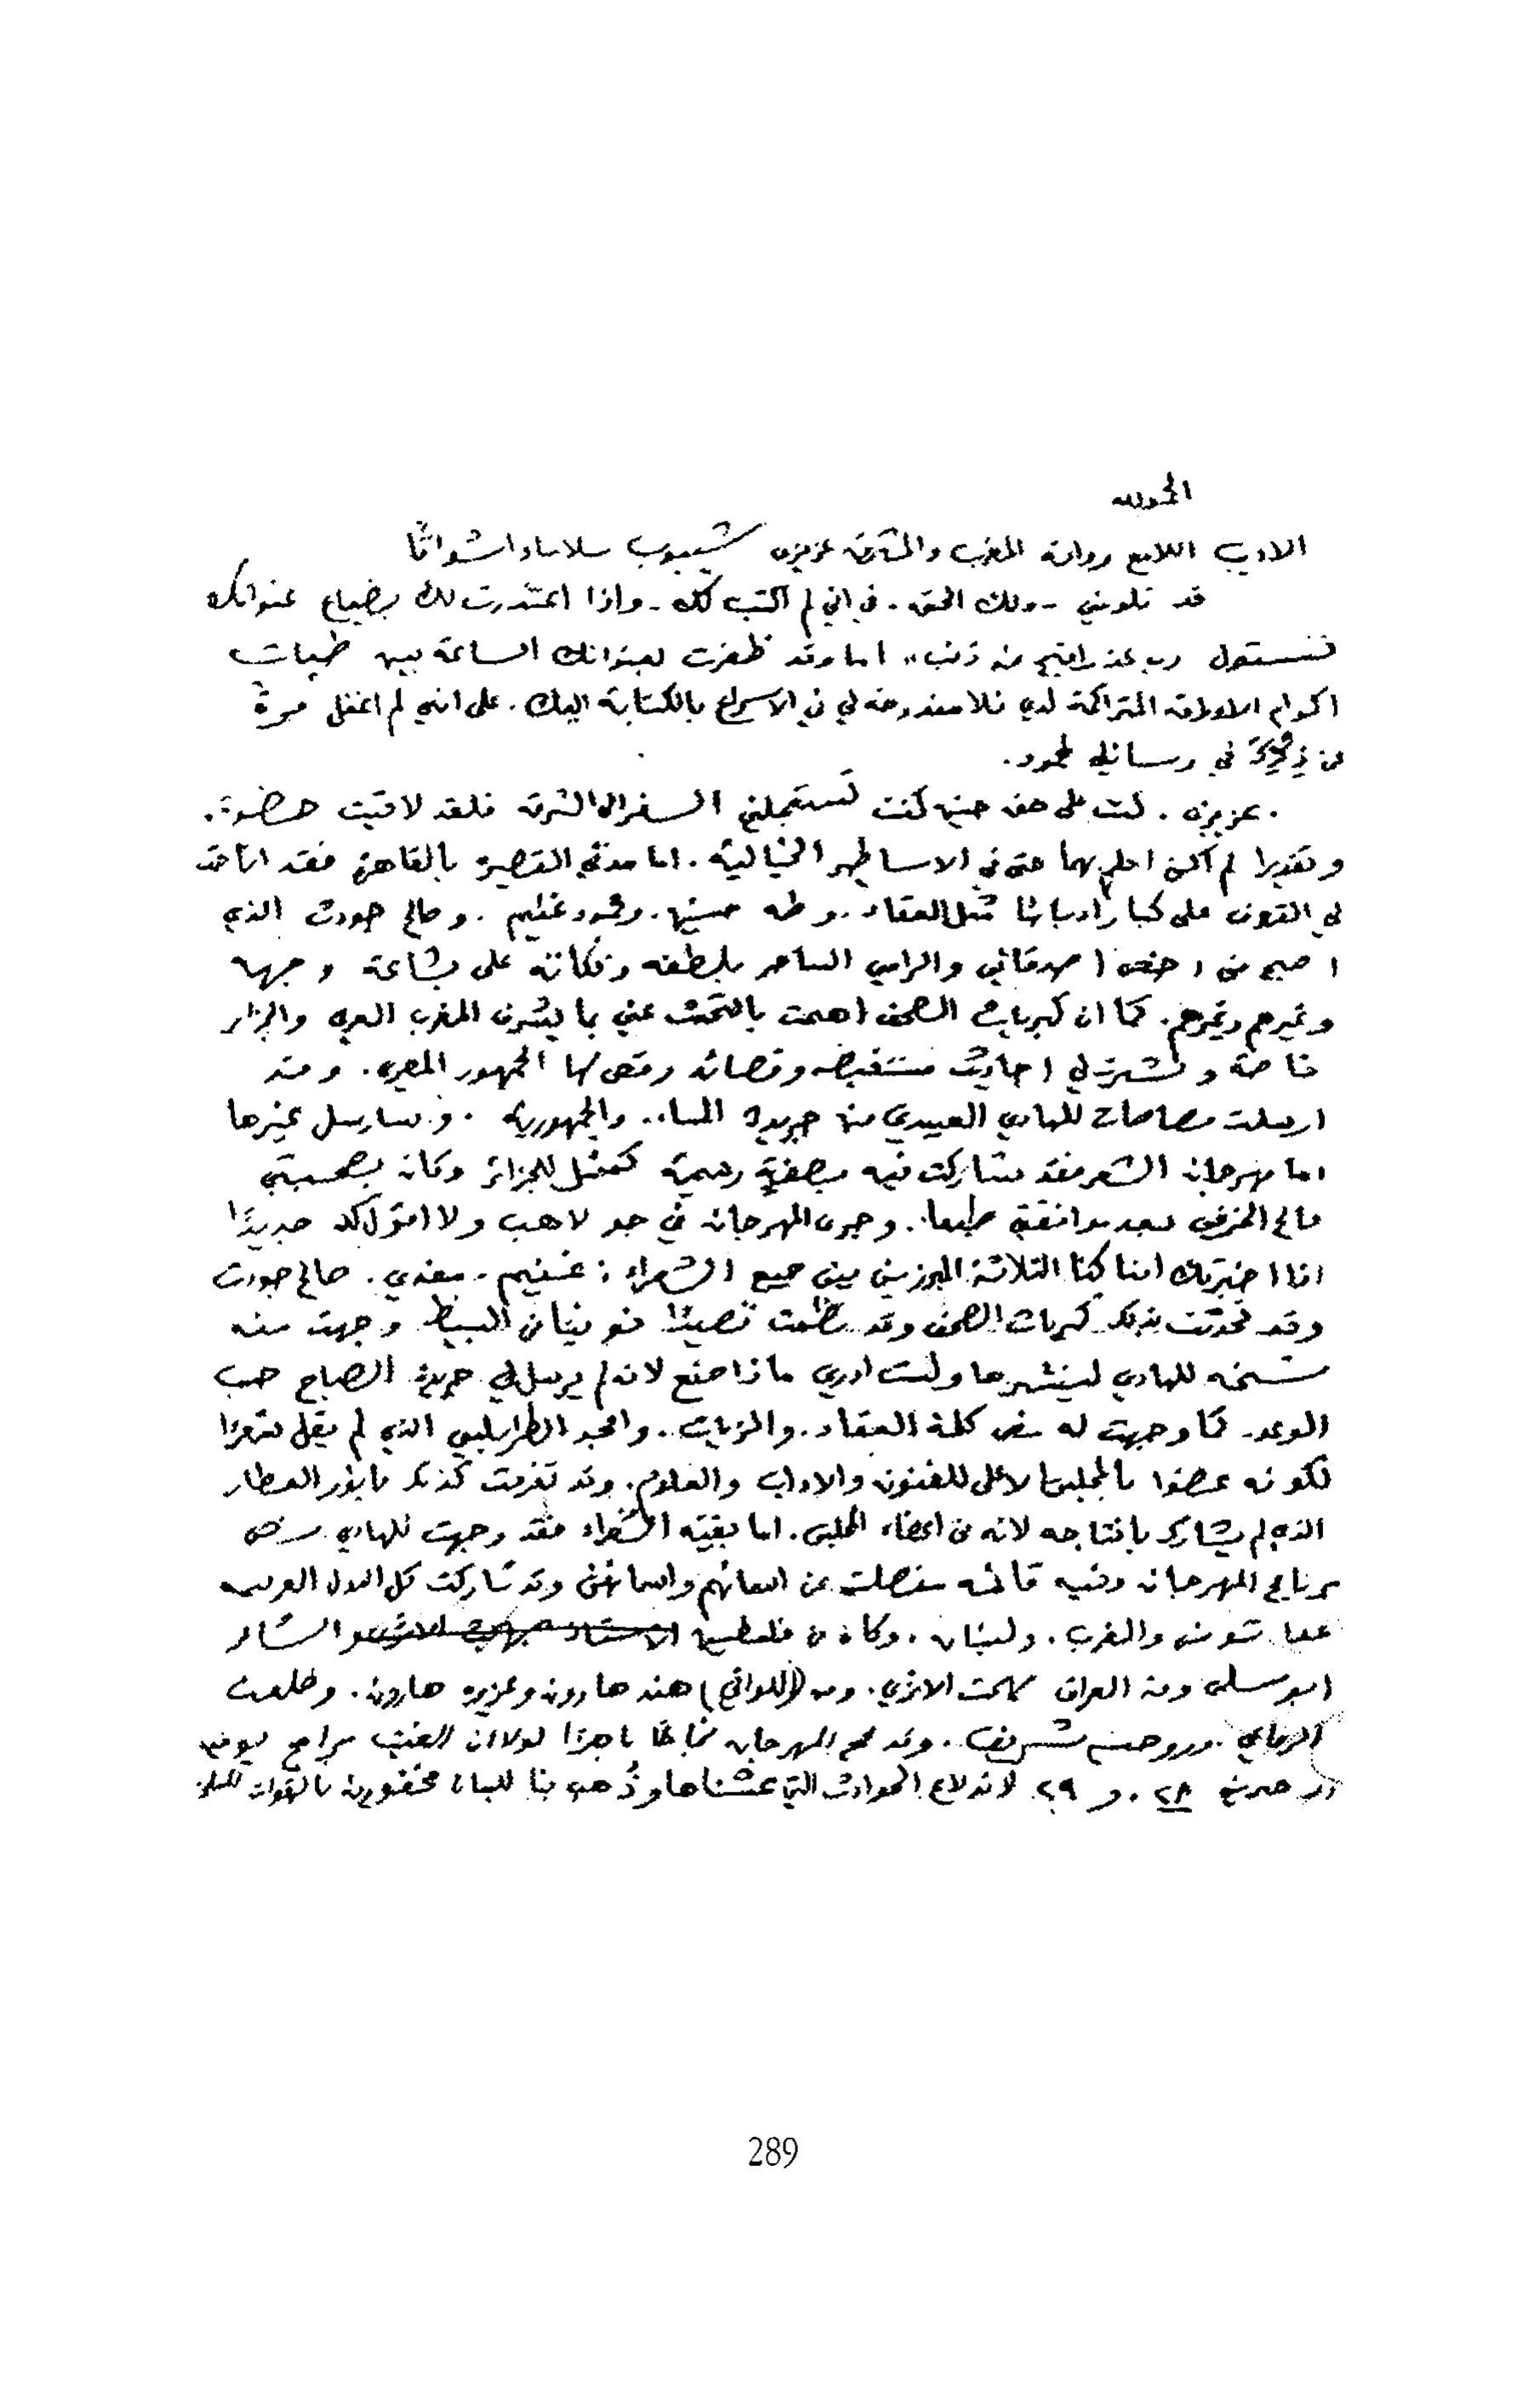 الحمد لله
الاديب اللامع روارة المغرب والمشرق عزيزي شيبوب سلاما واشواقا
قد تلومني - ولك الحق - في اني لم اكتب لك - واذا اعتذرت لك بضياع عنوانك
فستقول رب عذر اقبح من ذنب، اما وقد ظفرت بعنوانك الساعة بين طيات
اكوام الاوراق المتراكمة لدي فلا مندوحة لي في الاسراع بالكتابة اليك. على انني لم اغفل مرة
عن ذكرك في رسائلي لمحمود.
عزيزي. كنت على حق حين كنت تستعجلني السفر الى الشرق فلقد لاقيت حضوة.
وتقديرا لم اكن احلم بهما حتى في الاساطير الخيالية. اما مدتي القصيرة بالقاهرة فقد اتاحت
لي التعرف على كبار ادبائنا مثل العقاد. وطه حسين. ومحمود غنيم. وصالح جودت الذي
اصبح من اخص اصدقائي والرامي الساحر بلطفه وفكاهته على بشاعة وجهه
وغيرهم وغيرهم. كما ان كبريات الصحف اهتمت بالتحدث عني بما يشرف المغرب العربي والجزائر
خاصة ونشرت لي احاديث مستفيضة وقصائد رقص لها الجمهور المصري. وقد
ارسلت قصاصات للهادي العبيدي من جريدة المساء. والجمهورية. وسارسل غيرها
اما مهرجان الشعر فقد شاركت فيه بصفة رسمية كممثل للجزائر وكان بصحبتي
صالح الخرفي بعد موافقتي طبعا. وجرى المهرجان في جو لاهب ولا اقول لك جديدا
اذا اخبرتك اننا كنا الثلاثة المبرزين بين جميع الشعراء: غنيم. مفدي. صالح جودت
وقد تحدثت بذلك كبريات الصحف وقد نظمت قصيدا من البسيط وجهت منه
نسخة للهادي لينشرها ولست ادري ماذا صنع لانه لم يرسل لي جريدة الصباح حسب
الوعد. كما وجهت له نص كلمة العقاد. والزيات. وامجد الطرابلسي الذي لم يقل شعرا
لكونه عضوا بالمجلس الاعلى للفنون والاداب والعلوم. وقد تعرفت كذلك بانور العطار
الذي لم يشارك بانتاجه لانه من اعضاء المجلس. اما بقية الشعراء فقد وجهت للهادي نص
برنامج المهرجان وفيه قائمة مفصلة عن اسمائهم واسمائهن وقد شاركت كل الدول العربية
عدا تونس والمغرب. ولبنان. وكان من فلسطين الاستاذ والشاعر
ابو سلمى ومن العراق بهجت الاثري. ومن (اللواتي) هند هارون وعزيزة هارون. وطلعت
الرفاعي. وروحية شريف. وقد نجح المهرجان نجاحا باهرا لولا ان الغيت برامج يومي
28. و 29 لاندلاع الحوادث التي عشناها وذهب بنا للبنان مخفورين بالقوات المسلحة
289